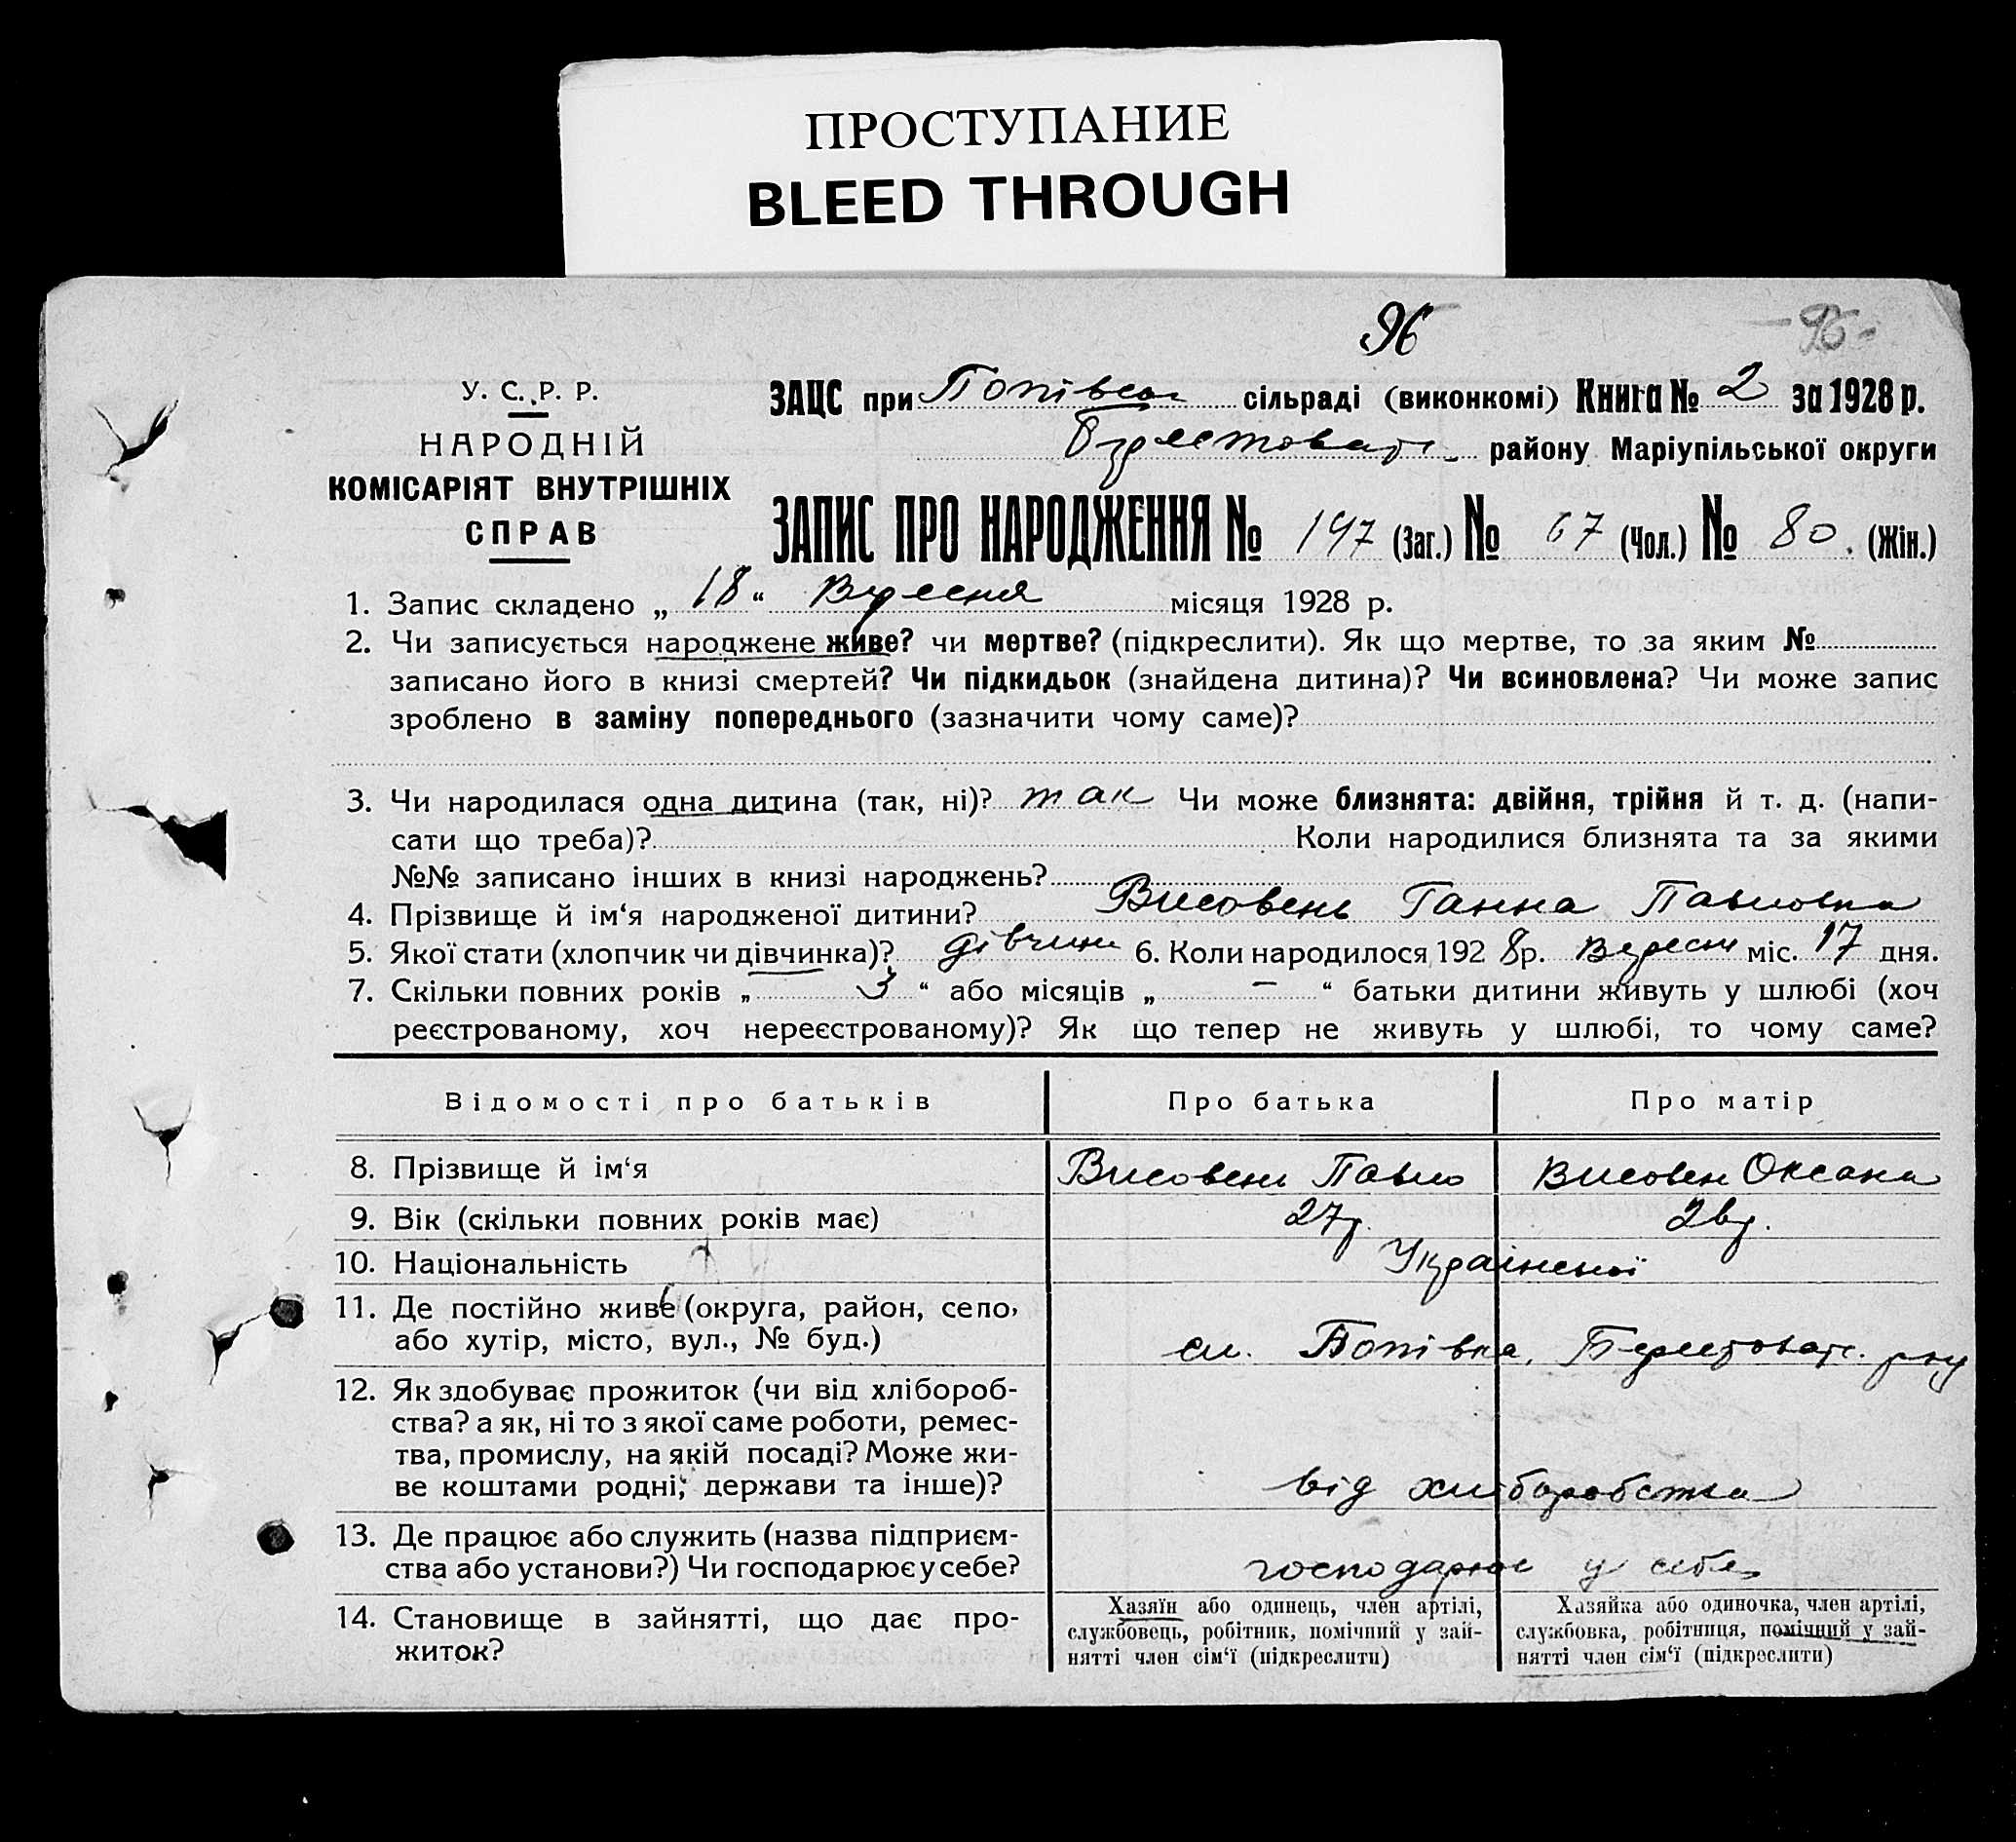 ПРОСТУПАНИЕ
BLEED THROUGH
96
- 95 -
У. С. Р. Р.
НАРОДНІЙ
КОМІСАРІЯТ ВНУТРІШНІХ
СПРАВ
ЗАЦС при Попівськ сільраді (виконкомі) Книга № 2 за 1928 р.
району Маріупільської округи
ЗАПИС ПРО НАРОДЖЕННЯ № 147 (Заг.) № 67 (Чол.) № 80. (Жін.)
1. Запис складено „ 18 “ Вересня місяця 1928 р.
2. Чи записується народжене живе? чи мертве? (підкреслити). Як що мертве, то за яким №
записано його в книзі смертей? Чи підкидьок (знайдена дитина)? Чи всиновлена? Чи може запис
зроблено в заміну попереднього (зазначити чому саме)?
3. Чи народилася одна дитина (так, ні)? так Чи може близнята: двійня, трійня й т. д. (напи-
сати що треба)? Коли народилися близнята та за якими
№№ записано інших в книзі народжень?
4. Прізвище й ім‘я народженої дитини? Висовень Ганна Павловна
5. Якої стати (хлопчик чи дівчинка)? дівчина 6. Коли народилося 192 8 р. Вересня міс. 17 дня.
7. Скільки повних років „ 3 “ або місяців „ — “ батьки дитини живуть у шлюбі (хоч
реєстрованому, хоч нереєстрованому)? Як що тепер не живуть у шлюбі, то чому саме?
Відомості про батьків Про батька Про матір
8. Прізвище й ім‘я Висовень Павло Висовен Оксана
9. Вік (скільки повних років має) 27 р. 26 р.
10. Національність Української
11. Де постійно живе (округа, район, село,
або хутір, місто, вул., № буд.) сл. Попівка, Берестоват. р-ну
12. Як здобуває прожиток (чи від хлібороб-
ства? а як, ні то з якої саме роботи, ремес-
тва, промислу, на якій посаді? Може жи-
ве коштами родні, держави та інше)? від хліборобства
13. Де працює або служить (назва підприєм-
ства або установи?) Чи господарює у себе? господарює у себе
14. Становище в зайнятті, що дає про-
житок?
Хазяїн або одинець, член артілі,
службовець, робітник, помічний у зай-
нятті член сім‘ї (підкреслити)
Хазяйка або одиночка, член артілі,
службовка, робітниця, помічний у зай-
нятті член сім‘ї (підкреслити)